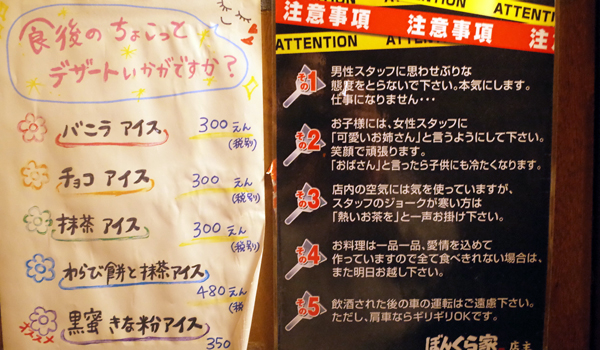 食後のちょこっと
デザートいかがですか?
バニラ アイス 300えん
(税別)
チョコ アイス 300えん
(税別)
抹茶 アイス 300えん
(税別)
わらび餅と抹茶アイス
480えん
(税
黒蜜 きな粉アイス
350
注意事項 注意事項
ATTENTION
注意事項 注
ATTENTION ATTENTION
その1 男性スタッフに思わせぶりな
態度をとらないで下さい。本気にします。
仕事になりません・・・
その2 お子様には、女性スタッフに
「可愛いお姉さん」と言うようにして下さい。
笑顔で頑張ります。
「おばさん」と言ったら子供にも冷たくなります。
その3 店内の空気には気を使っていますが、
スタッフのジョークが寒い方は
「熱いお茶を」と一声お掛け下さい。
その4 お料理は一品一品、愛情を込めて
作っていますので全て食べきれない場合は、
また明日お越し下さい。
その5 飲酒された後の車の運転はご遠慮下さい。
ただし、肩車ならギリギリOKです。
ぼんくら家 店主